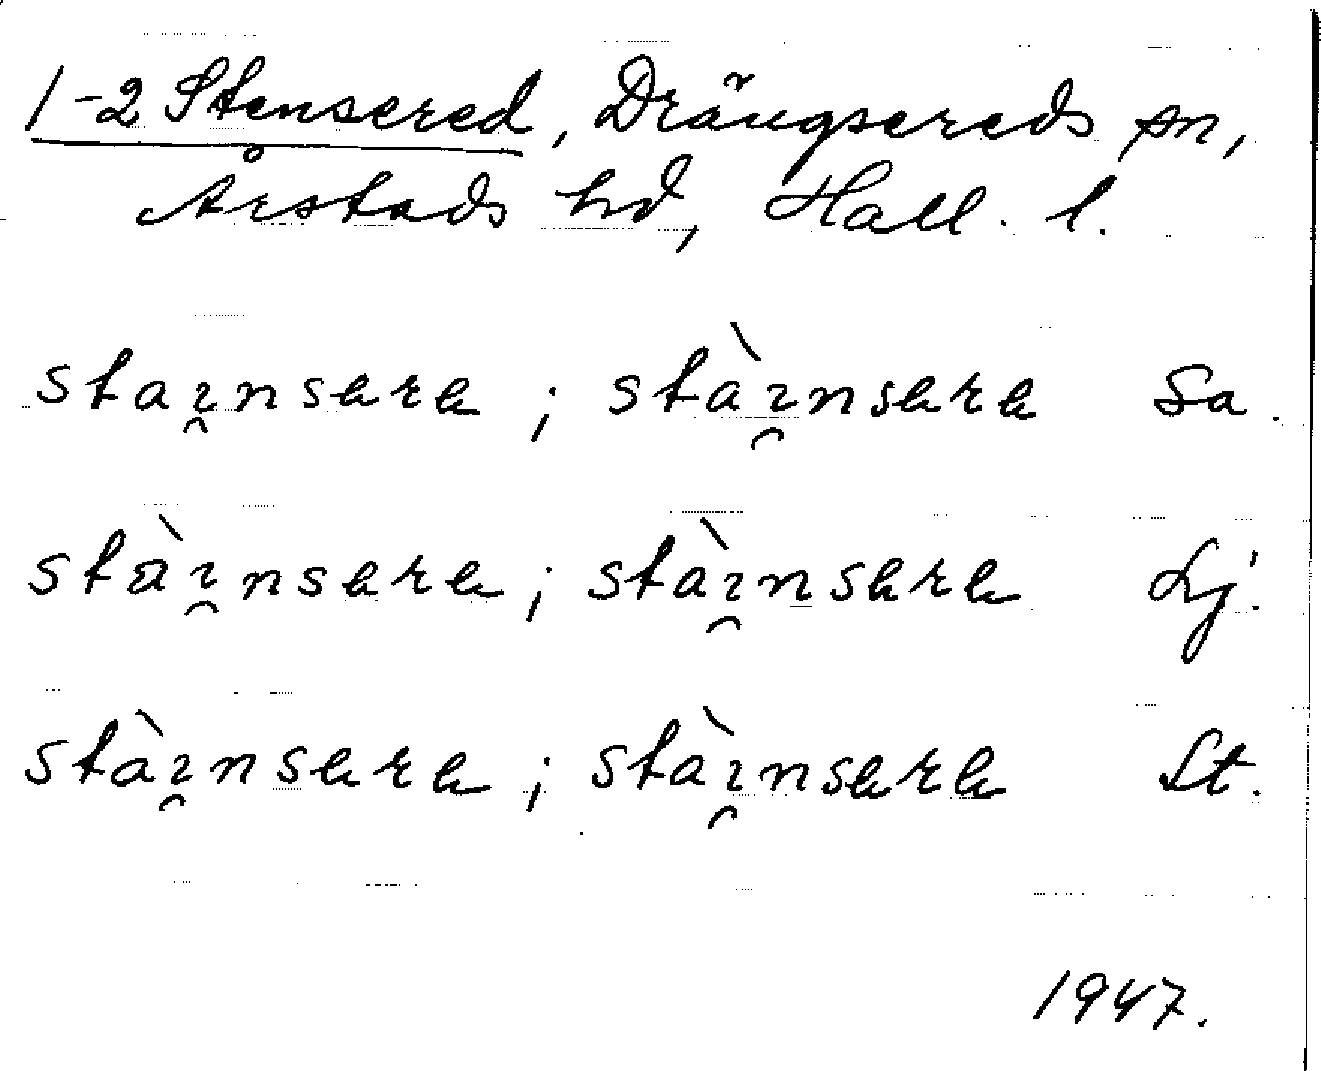 1-2 Stensered, Drängsereds sn,
Årstads hd, Hall. l.
staı̯nsere ; stàı̯nsere Sa.
stàı̯nsere ; stàı̯nsere Lj.
stàı̯nsere ; stàı̯nsere St.
1947.